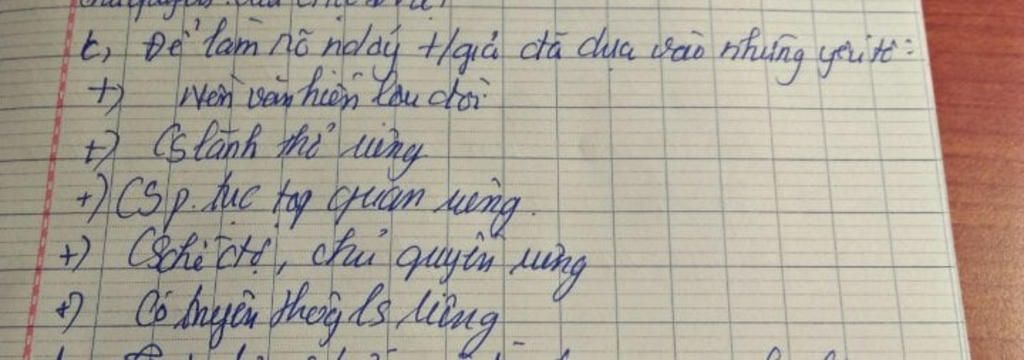 c, Để làm rõ nd đấy t/giả đã dựa vào những yếu tố:
+) Nền văn hiến lâu đời
+) Có lãnh thổ riêng
+) Có p. tục tập quán riêng.
+) Có chế độ, chủ quyền riêng
+) Có truyền thống ls riêng